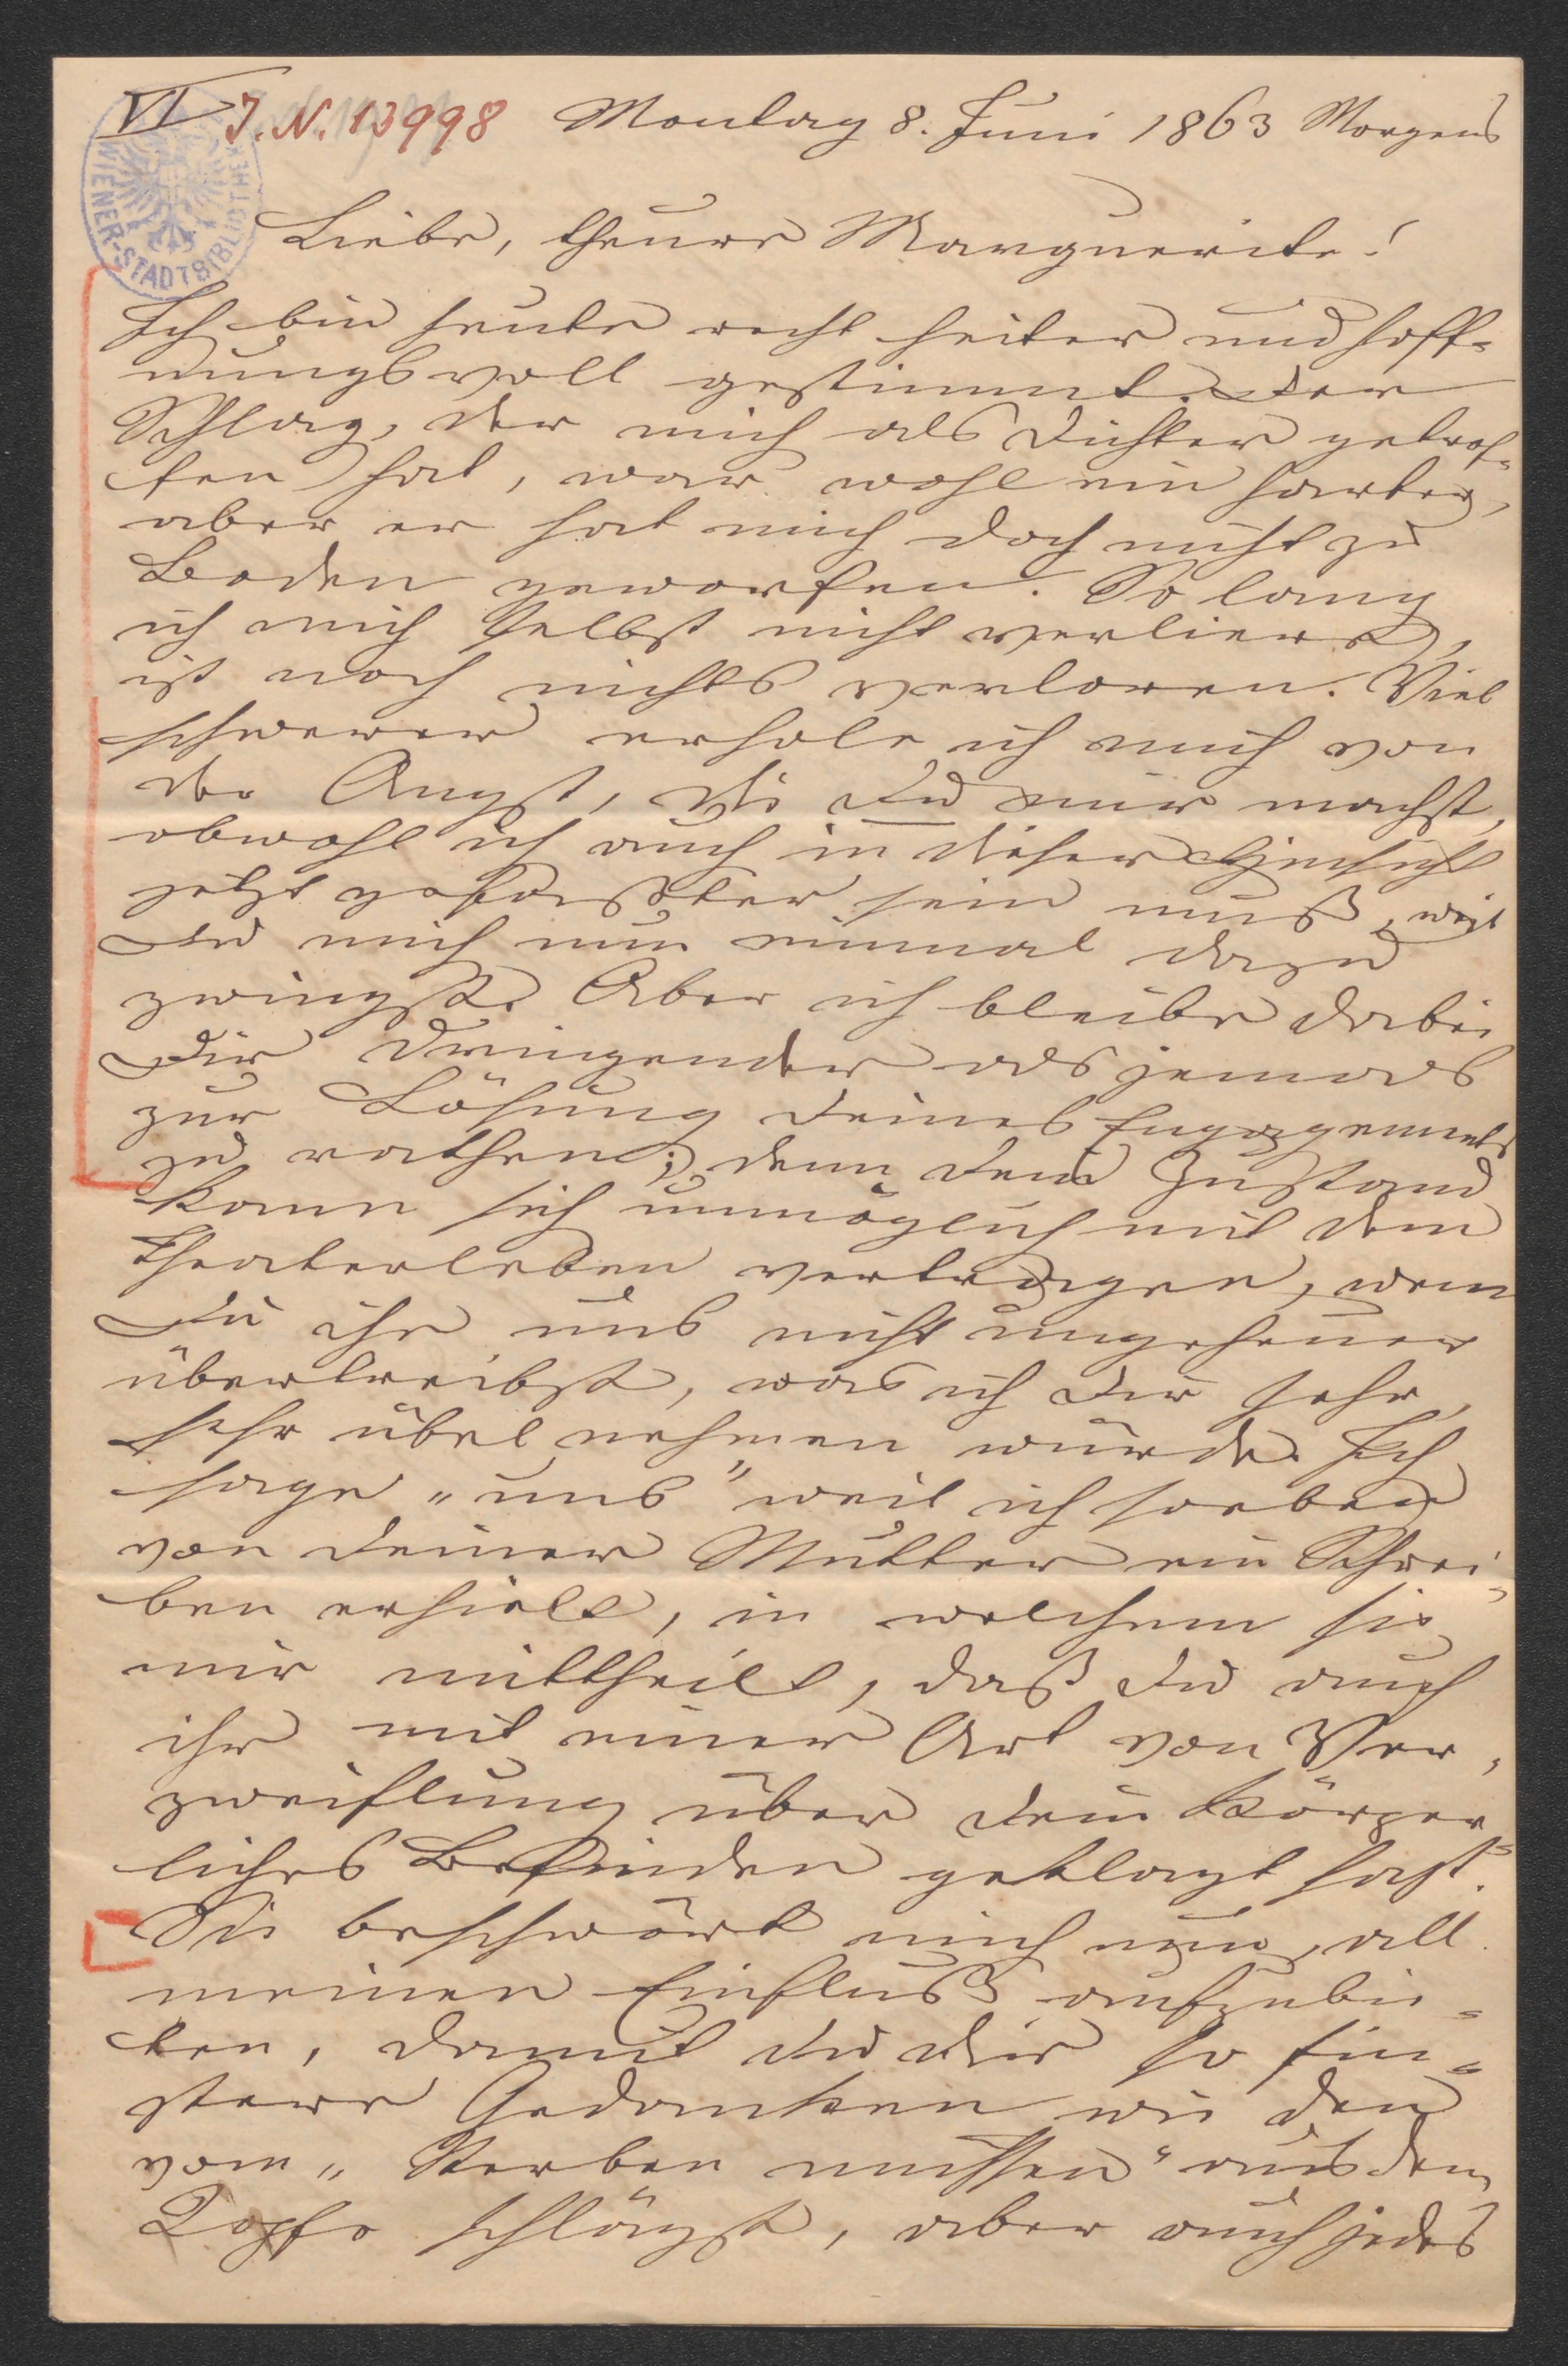 VI J. N. 13998 Montag 8. Juni 1863 Morgens
WIENER-STADTBIBLIOTHEK
Liebe, theure Marguerite!
Ich bin heute recht heiter und hoff-
nungsvoll gestimmt. Der
Schlag, der mich als Dichter getrof-
fen hat, war wohl ein harter,
aber er hat mich doch nicht zu
Boden geworfen. So lang
ich mich selbst nicht verliere,
ist noch nichts verloren. Viel
schwerer erhole ich mich von
der Angst, die Du mir machst,
obwohl ich auch in dieser Hinsicht
jetzt gefaßter sein muß, weil
Du mich nun einmal dazu
zwingst. Aber ich bleibe dabei
Dir dringender als jemals
zur Lösung Deines Engagements
zu rathen; denn Dein Zustand
kann sich unmöglich mit dem
Theaterleben vertragen, wenn
Du ihn uns nicht ungeheuer
übertreibst, was ich Dir sehr,
sehr übel nehmen würde. Ich
sage „uns" weil ich soeben
von Deiner Mutter ein Schrei-
ben erhielt, in welchem sie
mir mittheilt, daß Du auch
ihr mit einer Art von Ver-
zweiflung über Dein körper-
liches Befinden geklagt hast.
Sie beschwört mich nun, all
meinen Einfluß aufzubie-
ten, damit Du Dir so fin-
stere Gedanken wie den
vom „Sterben müssen" aus dem
Kopfe schlägst, aber auch jedes